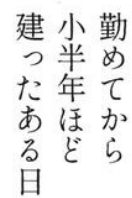 勤めてから
小半年ほど
建ったある日